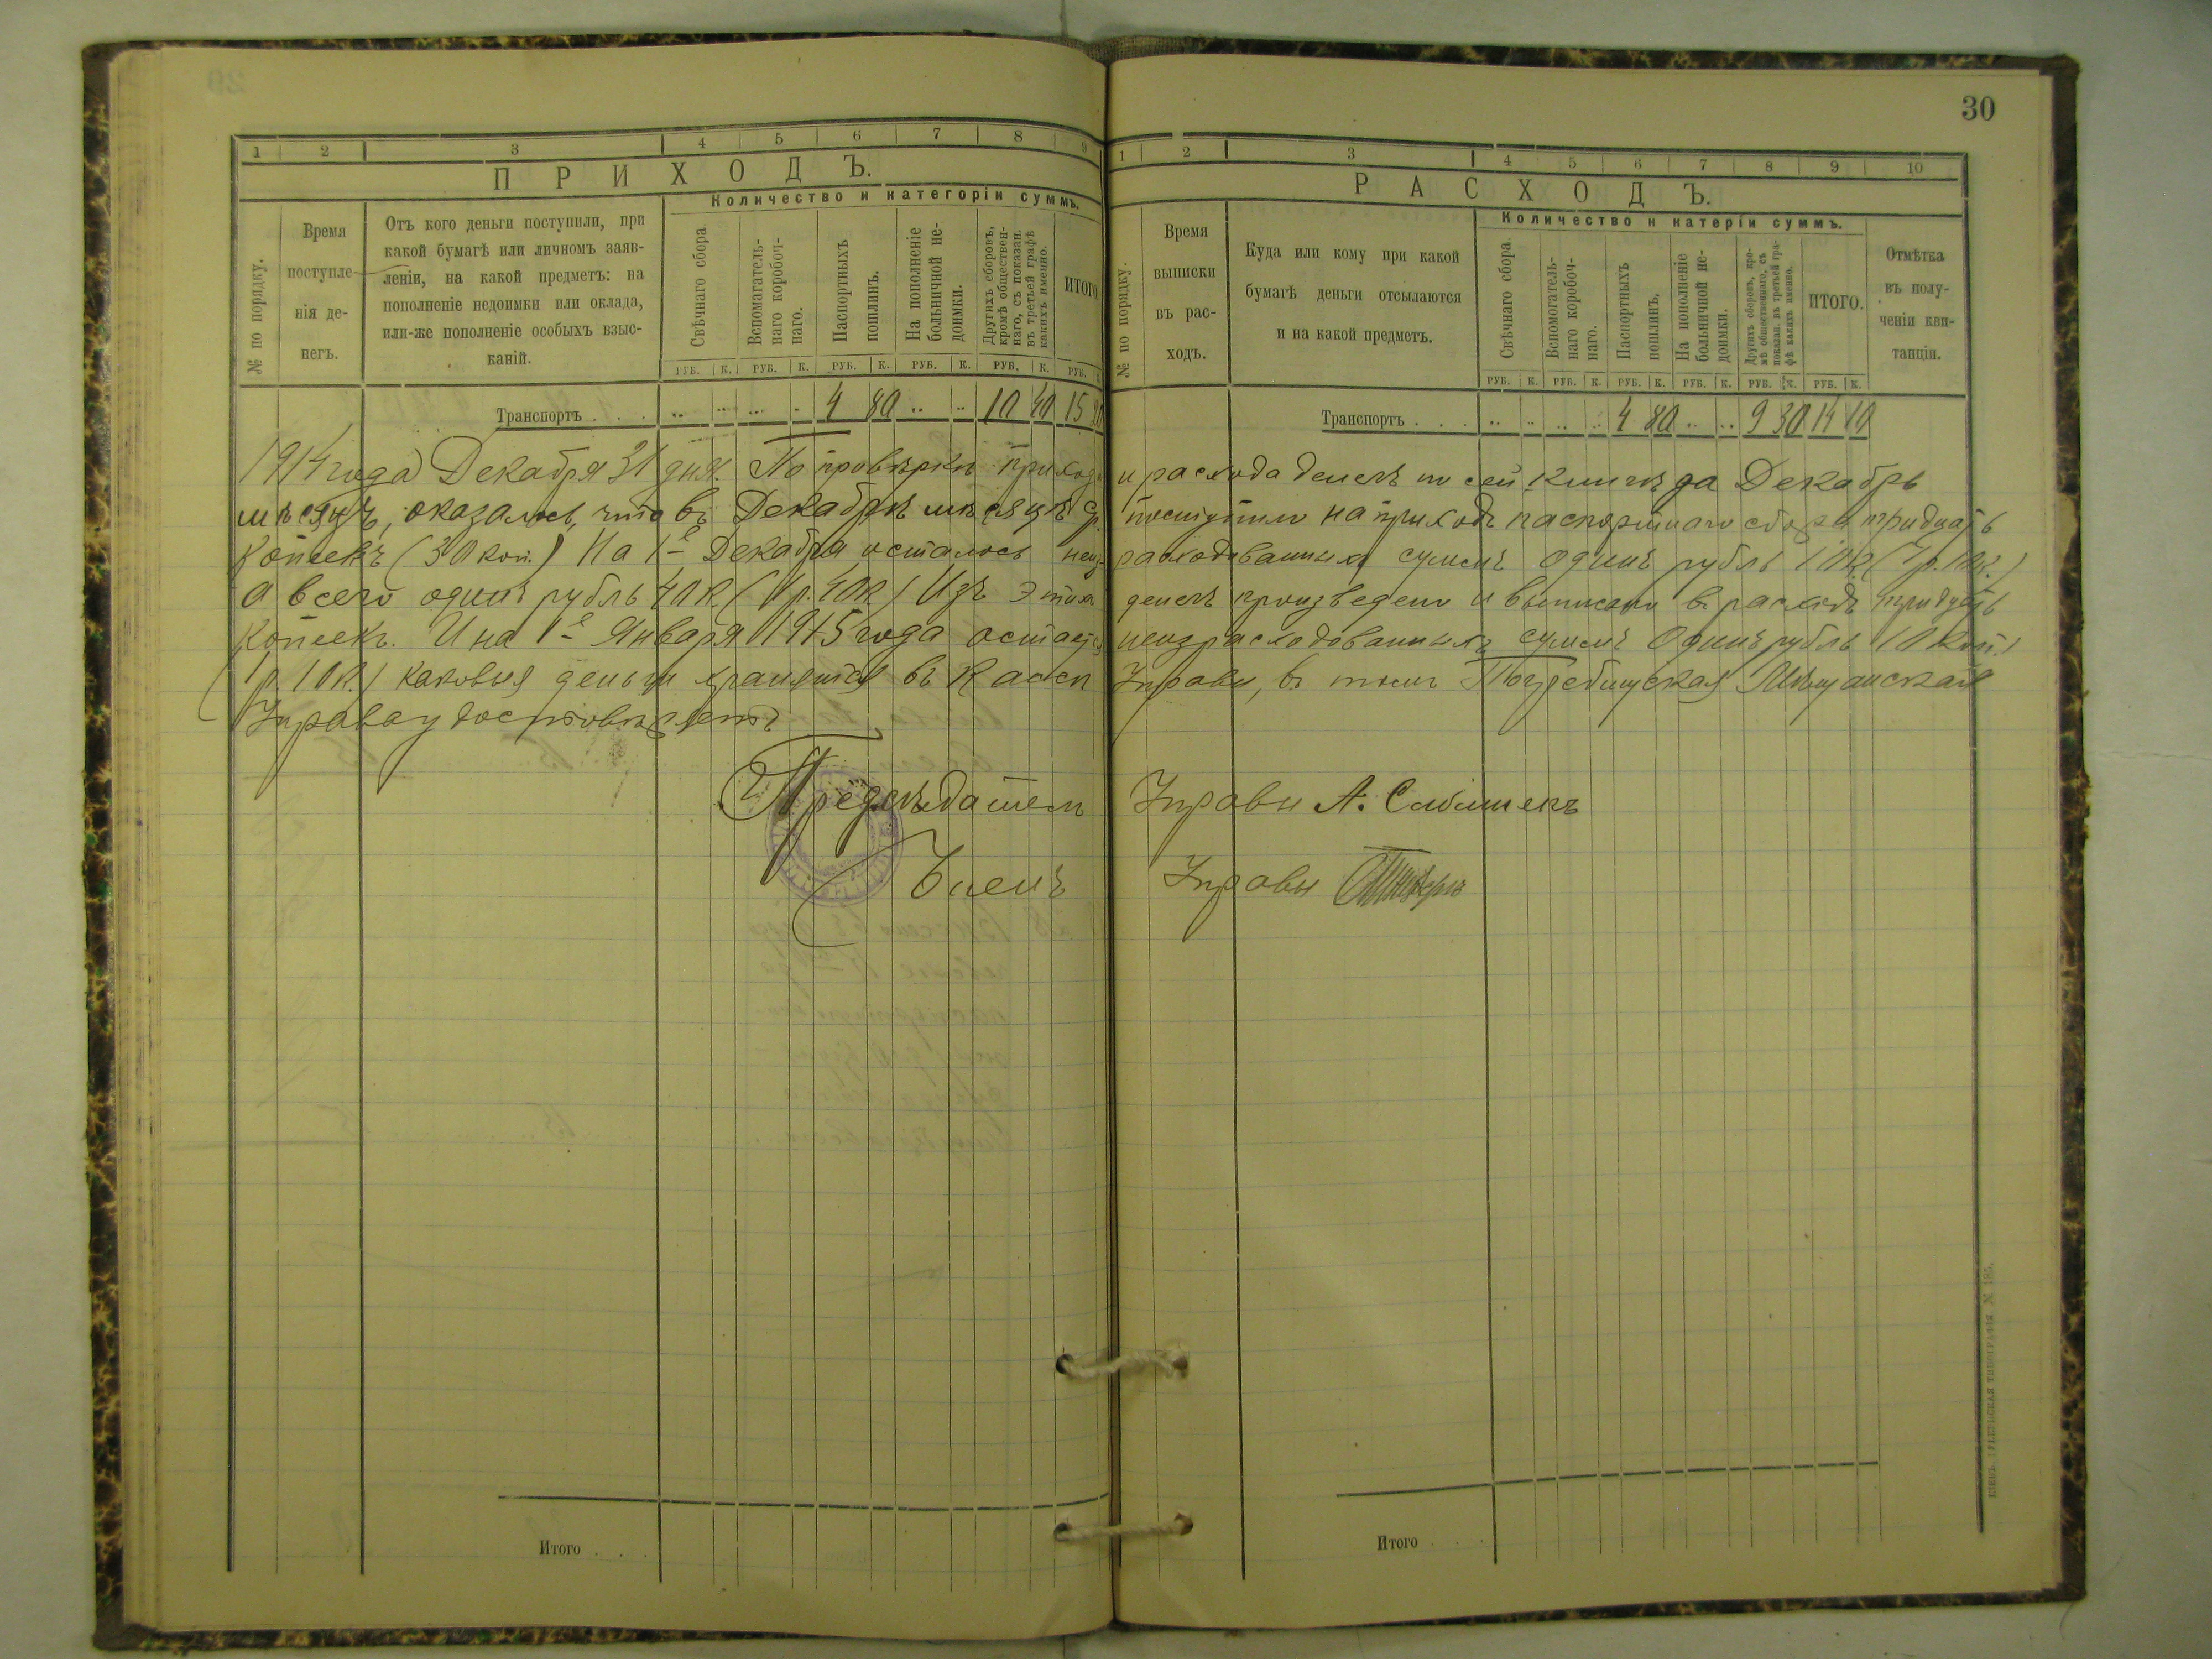 30
1 2 3 4 5 6 7 8 9
ПРИХОДЪ.
Количество и категоріи суммъ.
№ по порядку.
Время поступле-
нія де-
негъ.
Отъ кого деньги поступили, при
какой бумагѣ или личномъ заяв-
леніи, на какой предметъ: на
пополненіе недоимки или оклада,
или-же пополненіе особыхъ взыс-
каній.
Свѣчнаго сбора
Вспомагатель-
наго коробоч-
наго.
Паспортныхъ
пошлинъ.
На пополненіе
больничной не-
доимки.
Другихъ сборовъ,
кромѣ обществен-
наго, съ показан.
въ третьей графѣ
какихъ именно.
ИТОГО.
РУБ. К. РУБ. К. РУБ. К. РУБ. К. РУБ. К. РУБ.
Транспортъ . . . 4 80 10 40 15 20
1 2 3 4 5 6 7 8 9 10
РАСХОДЪ.
Количество и катеріи суммъ.
№ по порядку.
Время
выписки
въ рас-
ходъ.
Куда или кому при какой
бумагѣ деньги отсылаются
и на какой предметъ.
Свѣчнаго сбора
Вспомогатель-
наго коробоч-
наго.
Паспортныхъ
пошлинъ.
На пополненіе
больничной не-
доимки.
Другихъ сборовъ, кро-
мѣ общественнаго, съ
показан. въ третьей гра-
фѣ какихъ именно.
ИТОГО.
Отмѣтка
въ полу-
ченіи кви-
танціи.
РУБ. К. РУБ. К. РУБ. К. РУБ. К. РУБ. К. РУБ. К.
Транспортъ . . . 4 80 9 30 14 10
1914 года Декабря 31 дня. По провѣркѣ прихода и расхода денегъ по сей книгѣ за Декабрь
мѣсяцъ, оказалось, что въ Декабрѣ мѣсяцѣ с.г. поступило на приходъ паспортнаго сбора тридцать
копѣекъ (30 коп.) На 1е Декабря осталось неизрасходованныхъ суммъ одинъ рубль 10 к. (1 р. 10 к.)
а всего одинъ рубль 40 к. (1 р. 40 к.) Изъ этихъ денегъ произведено и выписано въ расходъ тридцать
копѣекъ. И на 1е Января 1915 года остается неизрасходованныхъ суммъ Одинъ рубль 10 коп.
(1 р. 10 к.) каковыя деньги хранятся въ кассѣ Управы, въ томъ Погребищская Мѣщанская
Управа удостовѣряетъ
Предсѣдатель Управы А.
Членъ Управы
Итого . . .
Итого . . .